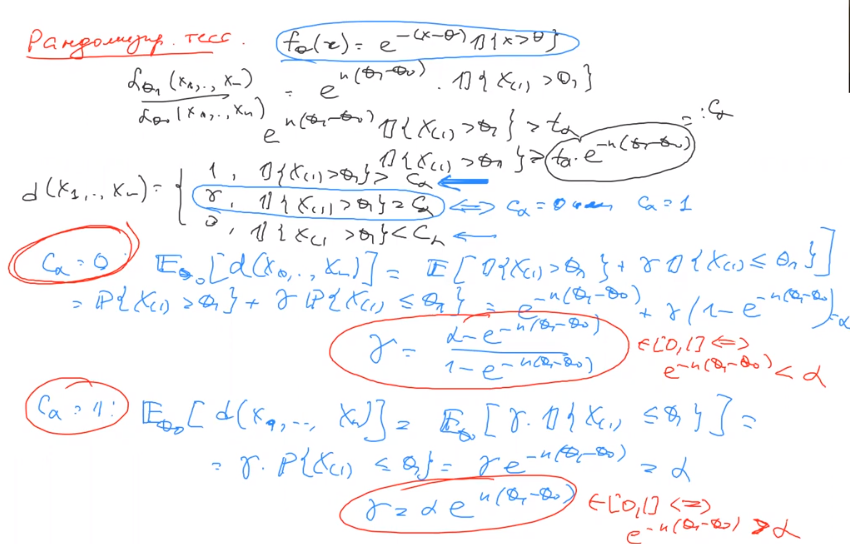 Рандомизир. тест. f_θ(x) = e^{-(x-θ)} 𝟙{x>θ}
L_{θ₁}(x₁,.., x_n) / L_{θ₀}(x₁,.., x_n) = e^{n(θ₁-θ₀)} · 𝟙{X_{(1)} > θ₁}
e^{n(θ₁-θ₀)} 𝟙{X_{(1)} > θ₁} > t_α =: C_α
𝟙{X_{(1)} > θ₁} > t_α · e^{-n(θ₁-θ₀)}
d(x₁,.., x_n) = { 1, 𝟙{X_{(1)} > θ₁} > C_α ←
γ, 𝟙{X_{(1)} > θ₁} = C_α ⟺ C_α = 0 или C_α = 1
0, 𝟙{X_{(1)} > θ₁} < C_α ←
C_α = 0: 𝔼_{θ₀}[d(x₁,.., x_n)] = 𝔼[𝟙{X_{(1)} > θ₁} + γ 𝟙{X_{(1)} ≤ θ₁}]
= ℙ{X_{(1)} > θ₁} + γ ℙ{X_{(1)} ≤ θ₁} = e^{-n(θ₁-θ₀)} + γ(1 - e^{-n(θ₁-θ₀)}) = α
γ = (α - e^{-n(θ₁-θ₀)}) / (1 - e^{-n(θ₁-θ₀)}) ∈ [0,1] ⟺
e^{-n(θ₁-θ₀)} < α
C_α = 1: 𝔼_{θ₀}[d(x₁,.., x_n)] = 𝔼_{θ₀}[γ · 𝟙{X_{(1)} ≤ θ₁}] =
= γ · ℙ{X_{(1)} ≤ θ₁} = γ e^{-n(θ₁-θ₀)} = α
γ = α e^{n(θ₁-θ₀)} ∈ [0,1] ⟺
e^{-n(θ₁-θ₀)} > α